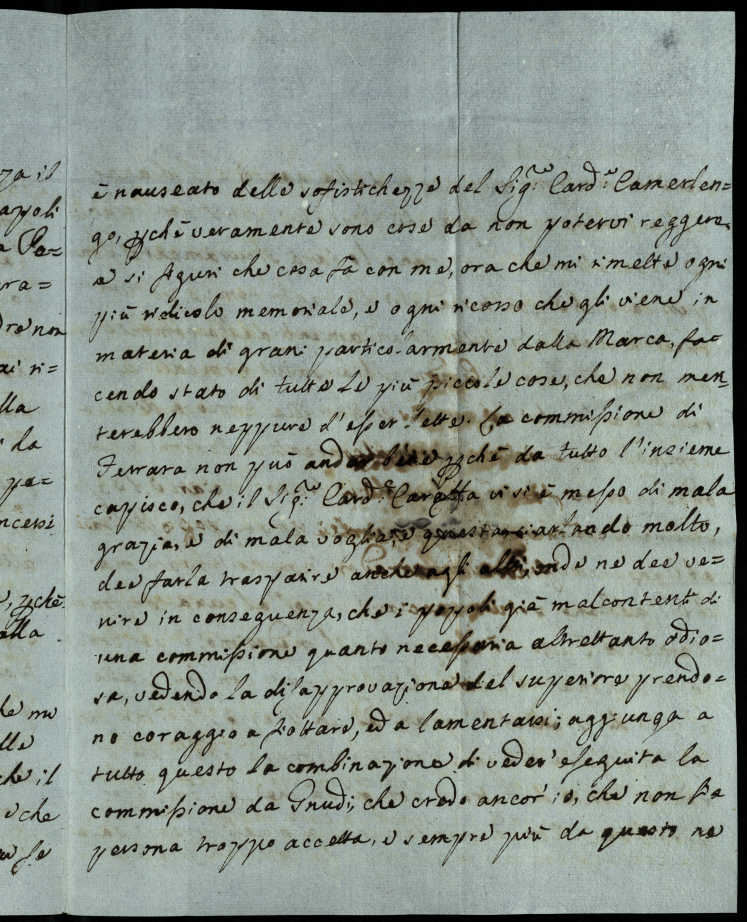 è nauseato delle sofistichezze del Sig.re Card.e Camerlen=
go, pchè veramente sono cose da non potervi reggere,
e si figuri che cosa fà con me, ora che mi rimette ogni
più ridicolo memoriale, e ogni ricorso che gli viene in
materia di grani particolarmente dalla Marca, fa=
cendo stato di tutte le più piccole cose, che non meri=
terebbero neppure d'esser lette. La commissione di
Ferrara non può andar bene pchè da tutto l'insieme
capisco, che il Sig.re Card.e Caraffa vi si è messo di mala
grazia, e di mala voglia, e parlando molto,
dee farla trasparire anche agli altri, onde ne dee ve=
nire in conseguenza, che i popoli già malcontenti di
una commissione quanto necessaria altrettanto odio=
sa, vedendo la disapprovazione del superiore prendo=
no coraggio a ed a lamentarsi; aggiunga a
tutto questo la combinazione di veder' eseguita la
commissione da Gnudi, che credo ancor' io, che non sia
persona troppo accetta, e sempre più da questo ne
za il
apoli
a Pa=
ra=
dre non
ai ri=
lla
la
pa=
ncessi
pchè
alla
he mi
lle
che il
e che
se